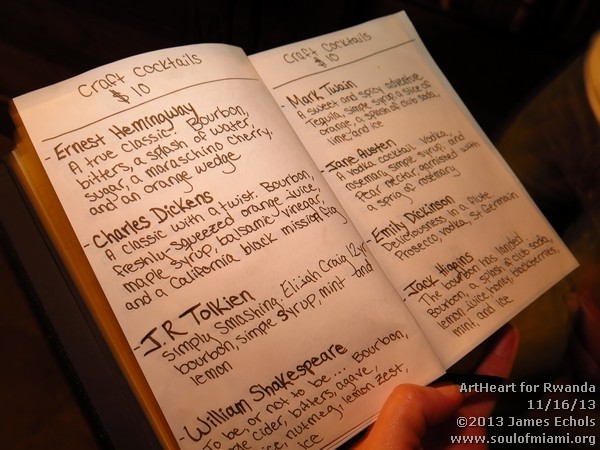 Craft Cocktails
$10
- Ernest Hemingway
A true classic. Bourbon,
bitters, a splash of water,
sugar, a maraschino cherry,
and an orange wedge
- Charles Dickens
A classic with a twist. Bourbon,
freshly squeezed orange juice,
maple syrup, balsamic vinegar,
and a California black mission fig
- J.R Tolkien
Simply Smashing, Elijah Craig 12yr
bourbon, simple syrup, mint and
lemon
- William Shakespeare
To be, or not to be... Bourbon,
cider, bitters, agave,
nutmeg, lemon zest,
ice
Craft Cocktails
$10
- Mark Twain
A sweet and spicy adventure
Tequila, simple syrup, a slice of
orange, a splash of club soda,
lime and ice
- Jane Austen
A vodka cocktail. Vodka,
rosemary simple syrup, and
Pear nectar, garnished with
a sprig of rosemary
- Emily Dickinson
Deliciousness in a flute
Prosecco, vodka, St. Germain
- Jack Higgins
The bourbon has landed
Bourbon, a splash of club soda,
lemon juice, honey, blackberries,
mint, and ice
ArtHeart for Rwanda
11/16/13
©2013 James Echols
www.soulofmiami.org